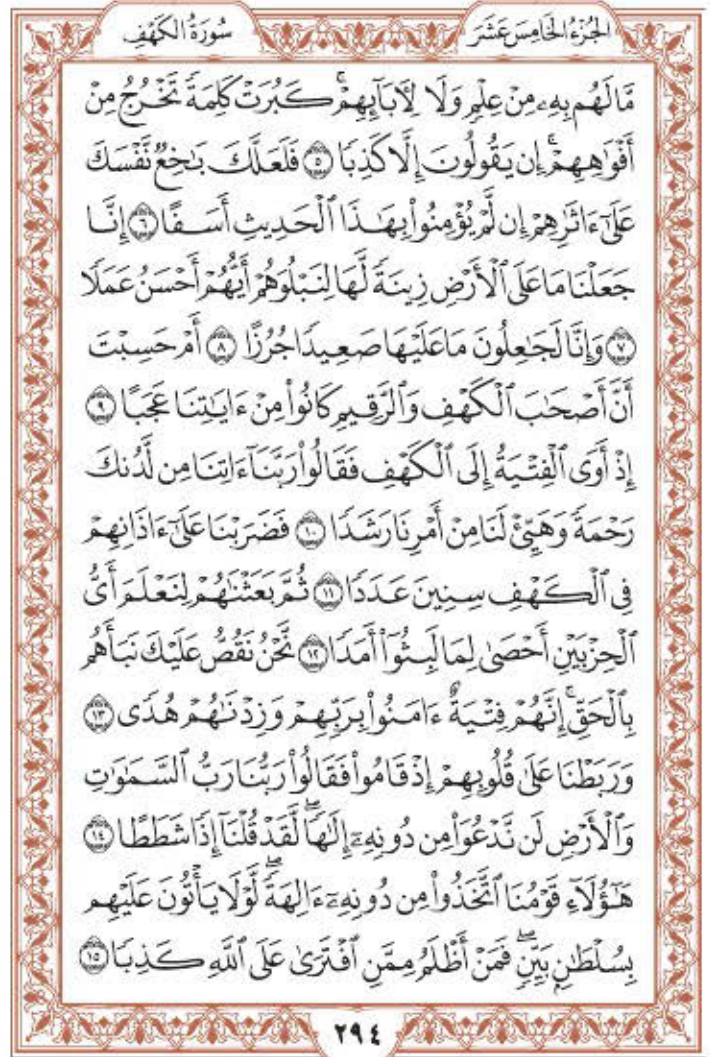 الجُزْءُ الخَامِسَ عَشَرَ
سُورَةُ الكَهْفِ
مَّا لَهُم بِهِۦ مِنْ عِلْمٍ وَلَا لِأٓبَآئِهِمْۚ كَبُرَتْ كَلِمَةً تَخْرُجُ مِنْ
أَفْوَٰهِهِمْۚ إِن يَقُولُونَ إِلَّا كَذِبًا ۝٥ فَلَعَلَّكَ بَٰخِعٌ نَّفْسَكَ
عَلَىٰٓ ءَاثَٰرِهِمْ إِن لَّمْ يُؤْمِنُوا۟ بِهَٰذَا ٱلْحَدِيثِ أَسَفًا ۝٦ إِنَّا
جَعَلْنَا مَا عَلَى ٱلْأَرْضِ زِينَةً لَّهَا لِنَبْلُوَهُمْ أَيُّهُمْ أَحْسَنُ عَمَلًا
۝٧ وَإِنَّا لَجَٰعِلُونَ مَا عَلَيْهَا صَعِيدًا جُرُزًا ۝٨ أَمْ حَسِبْتَ
أَنَّ أَصْحَٰبَ ٱلْكَهْفِ وَٱلرَّقِيمِ كَانُوا۟ مِنْ ءَايَٰتِنَا عَجَبًا ۝٩
إِذْ أَوَى ٱلْفِتْيَةُ إِلَى ٱلْكَهْفِ فَقَالُوا۟ رَبَّنَآ ءَاتِنَا مِن لَّدُنكَ
رَحْمَةً وَهَيِّئْ لَنَا مِنْ أَمْرِنَا رَشَدًا ۝١٠ فَضَرَبْنَا عَلَىٰٓ ءَاذَانِهِمْ
فِى ٱلْكَهْفِ سِنِينَ عَدَدًا ۝١١ ثُمَّ بَعَثْنَٰهُمْ لِنَعْلَمَ أَىُّ
ٱلْحِزْبَيْنِ أَحْصَىٰ لِمَا لَبِثُوٓا۟ أَمَدًا ۝١٢ نَّحْنُ نَقُصُّ عَلَيْكَ نَبَأَهُم
بِٱلْحَقِّۚ إِنَّهُمْ فِتْيَةٌ ءَامَنُوا۟ بِرَبِّهِمْ وَزِدْنَٰهُمْ هُدًى ۝١٣
وَرَبَطْنَا عَلَىٰ قُلُوبِهِمْ إِذْ قَامُوا۟ فَقَالُوا۟ رَبُّنَا رَبُّ ٱلسَّمَٰوَٰتِ
وَٱلْأَرْضِ لَن نَّدْعُوَا۟ مِن دُونِهِۦٓ إِلَٰهًاۖ لَّقَدْ قُلْنَآ إِذًا شَطَطًا ۝١٤
هَٰٓؤُلَآءِ قَوْمُنَا ٱتَّخَذُوا۟ مِن دُونِهِۦٓ ءَالِهَةًۖ لَّوْلَا يَأْتُونَ عَلَيْهِم
بِسُلْطَٰنٍۭ بَيِّنٍۖ فَمَنْ أَظْلَمُ مِمَّنِ ٱفْتَرَىٰ عَلَى ٱللَّهِ كَذِبًا ۝١٥
٢٩٤